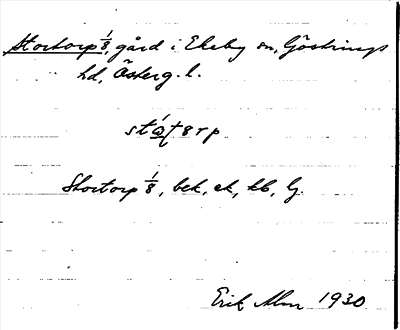 Stortorp 1/8, gård i Ekeby sn, Göstrings
hd, Österg. l.
Stortorp 1/8, bek, ek, kb, lj.
Erik Alm 1930